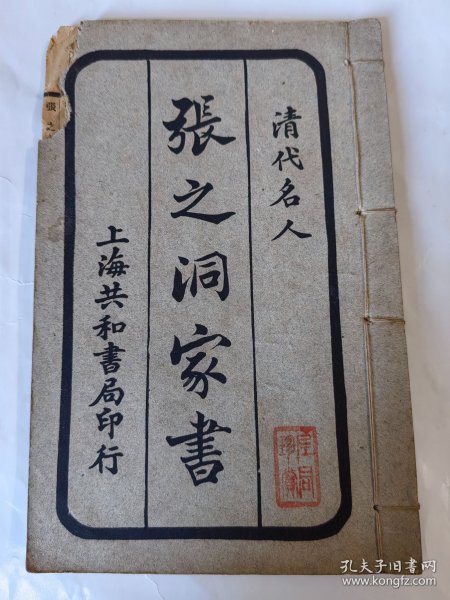 清代名人
張之洞家書
上海共和書局印行
張之
孔夫子旧书网
www.kongfz.com